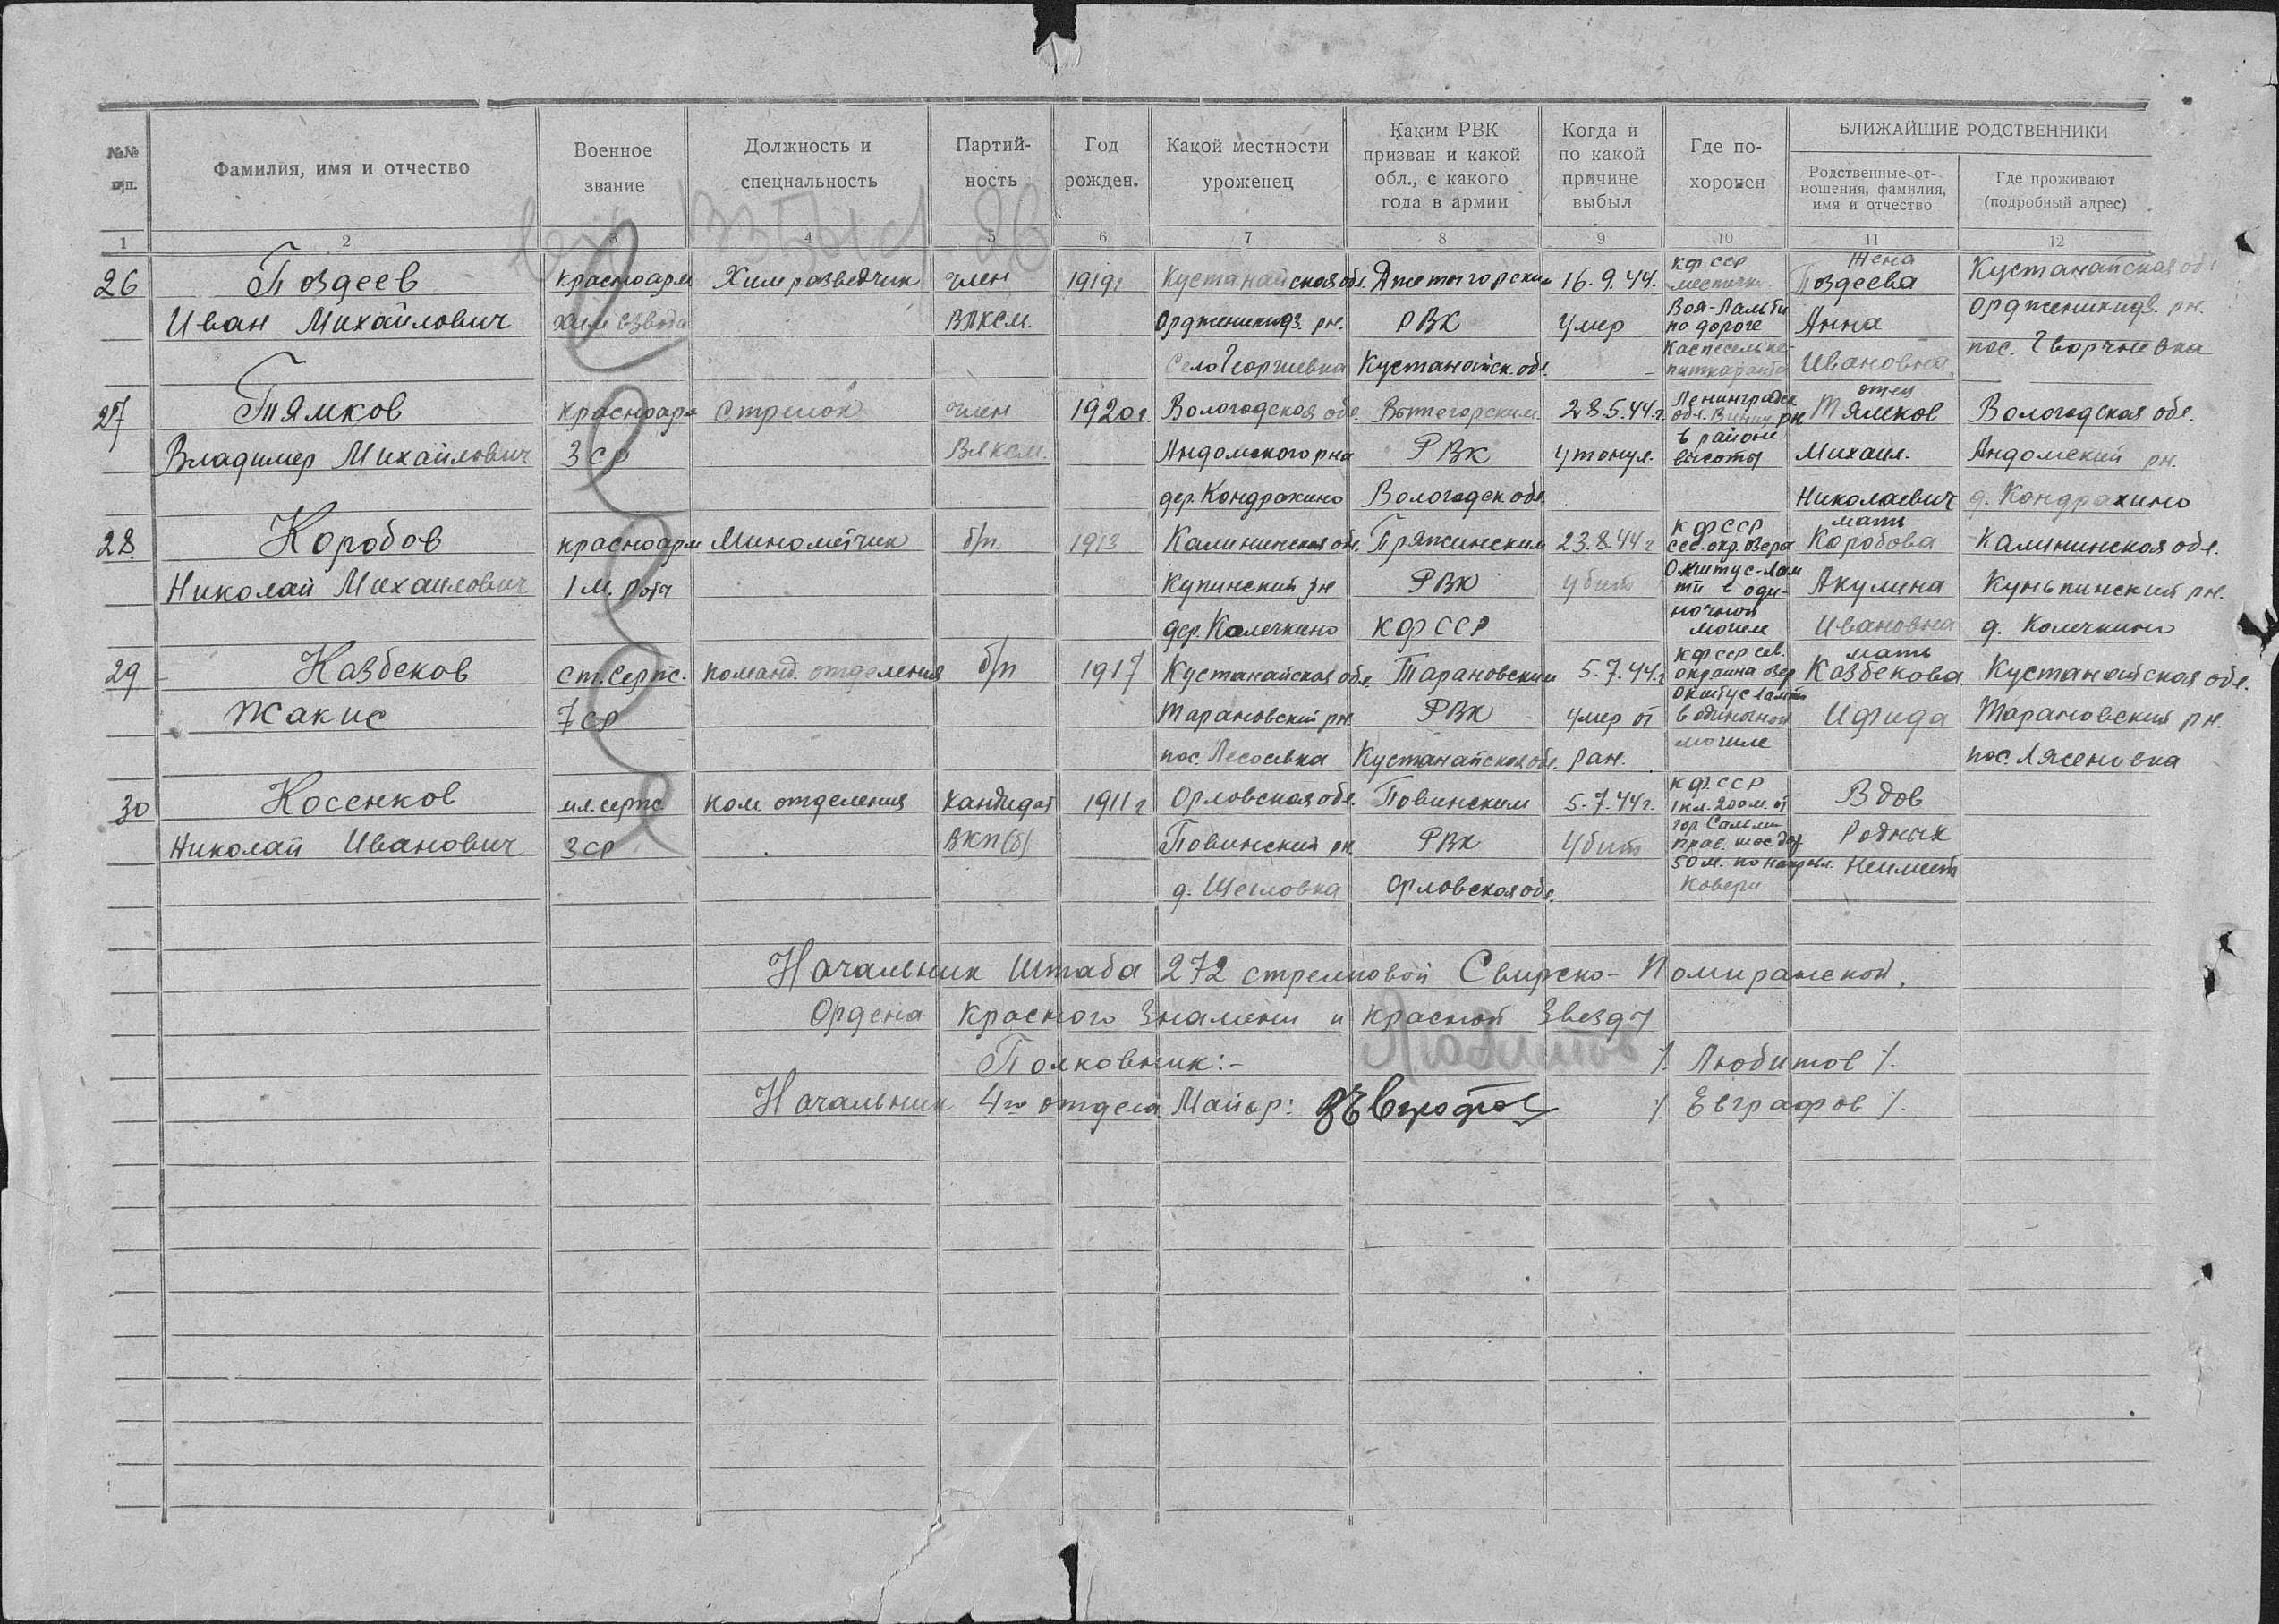 №№ п/п.
Фамилия, имя и отчество
Военное звание
Должность и специальность
Партий-ность
Год рожден.
Какой местности уроженец
Каким РВК призван и какой обл., с какого года в армии
Когда и по какой причине выбыл
Где по-хоронен
БЛИЖАЙШИЕ РОДСТВЕННИКИ
Родственные от-ношения, фамилия, имя и отчество
Где проживают (подробный адрес)
1 2 3 4 5 6 7 8 9 10 11 12
КФССР Жена
26 Поздеев красноарм Химразведчик член 1919г Кустанайская обл. Джетыгорским 16.9.44. местечк. Поздеева Кустанайская обл
Иван Михайлович хим взвода ВЛКСМ. Орджоникидз. рн. РВК Умер Воя-Лампи по дороге Анна орджоникидз. рн.
Село Георгиевка Кустанайск. обл. Ивановна. пос.
27 Тямков красноарм Стрелок член 1920г. Вологодская обл. Вытегорским 28.5.44.г. Ленинградск. обл. рн. отец Тямков Вологодская обл.
Владимер Михайлович 3 ср ВЛКСМ. Андомского рна РВК Утонул. в районе высоты Михаил. Андомский рн.
дер. Кондрахино Вологодск обл. Николаевич д. Кондрахино
28. Коробов красноарм Минометчик б/п. 1913 Калининская обл. Пряжинским 23.8.44г КФССР сев. окр. озера мать Коробова Калининская обл.
Николай Михаилович 1 м. рота Купинский рн РВК Убит в оди- Акулина Куньпинский рн.
дер. Колечкино КФССР ночной могил Ивановна д. Колечкино
29 Казбеков ст. серж. команд. отделения б/п 1917 Кустанайская обл. Тарановским 5.7.44.г КФССР сев. окраина озер мать Казбекова Кустанайская обл.
Жакис 7 ср Тарановский рн. РВК Умер от в одиночной Ифида Тарановский рн.
пос. Лесосевка Кустанайская обл. ран. могиле пос. Лясеновка
30 Косенков мл. серж ком. отделения Кандидат 1911г Орловская обл. Повинским 5.7.44г. КФССР 1 км. 200 м. от Вдов
Николай Иванович 3 ср ВКП(б) Повинский рн. РВК Убит гор. Салми прав. шос. дор Родных
д. Щегловка Орловская обл. 50 м. по направл. Ковери Неимеет
Начальник Штаба 272 стрелковой Свирско-Померанской,
Ордена Красного Знамени и Красной Звезды
Полковник:- Любитов /. Любитов /.
Начальник 4го отдела Майор: Евграфов /. Евграфов /.